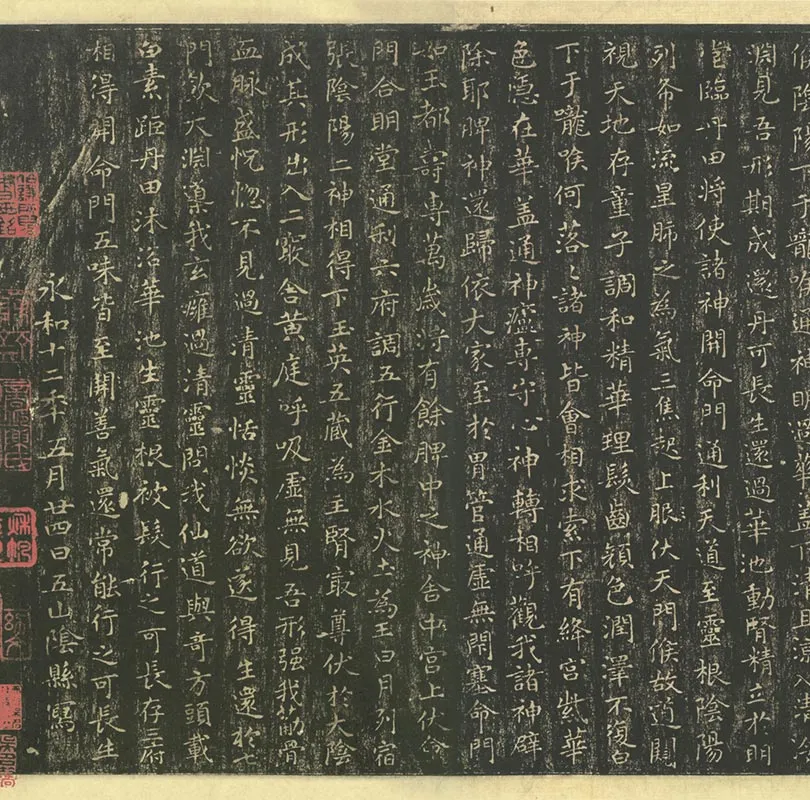 候陰陽下于喉嚨通神明過華蓋下清且涼入清泠
淵見吾形期成還丹可長生還過華池動腎精立於明
堂臨丹田將使諸神開命門通利天道至靈根陰陽
列布如流星肺之為氣三焦起上服伏天門候故道闚
視天地存童子調和精華理髮齒顏色潤澤不復白
下于嚨喉何落〻諸神皆會相求索下有絳宮紫華
色隱在華蓋通神廬專守心神轉相呼觀我諸神辟
除耶脾神還歸依大家至於胃管通虛無閉塞命門
如玉都壽專萬歲將有餘脾中之神舍中宮上伏命
門合明堂通利六府調五行金木水火土為王日月列宿
張陰陽二神相得下玉英五藏為主腎最尊伏於大陰
成其形出入二竅舍黃庭呼吸虛無見吾形强我筋骨
血脉盛恍惚不見過清靈恬惔無欲遂得生還於七
門飲大淵還我玄癰過清靈問我仙道與奇方頭載
白素距丹田沐浴華池生靈根被髮行之可長存三府
相得開命門五味皆至開善氣還常能行之可長生
永和十二年五月廿四日五山陰縣寫